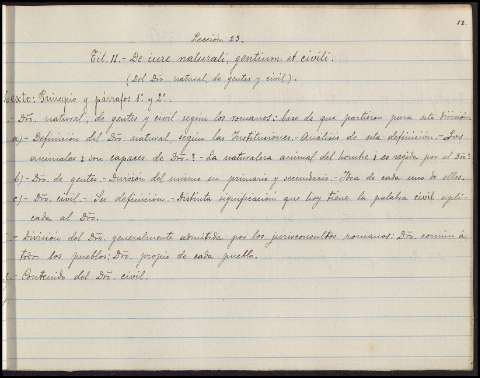 12.
Lección 23.
Tít. II. - De iure naturali, gentium et civili.
(Del Dro. natural, de gentes y civil).
Texto: Principio y párrafos 1º y 2º.
- Dro. natural, de gentes y civil según los romanos: base de que partieron para esta división.
a) - Definición del Dro. natural, según las Instituciones. - Análisis de esta definición. - Los
animales ¿son capaces de Dro.? - La naturaleza animal del hombre ¿es regida por el Dro?
b) - Dro. de gentes. - División del mismo en primario y secundario. - Idea de cada uno de ellos.
c) - Dro. civil. - Su definición. - Distinta significación que hoy tiene la palabra civil apli-
cada al Dro.
- División del Dro. generalmente admitida por los jurisconsultos romanos: Dro. común á
todos los pueblos; Dro. propio de cada pueblo.
- Contenido del Dro. civil.